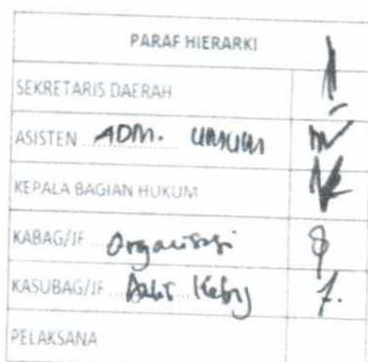 PARAF HIERARKI
SEKRETARIS DAERAH
ASISTEN ADM. UMUM
KEPALA BAGIAN HUKUM
KABAG/JF Organisasi
KASUBAG/JF
PELAKSANA